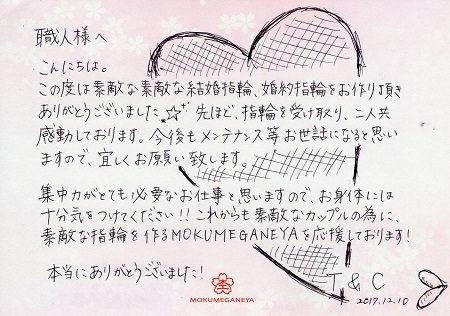 職人様へ
こんにちは。
この度は素敵な素敵な結婚指輪、婚約指輪をお作り頂き
ありがとうございました☆ 先ほど、指輪を受け取り、二人共
感動しております。今後もメンテナンス等お世話になると思い
ますので、宜しくお願い致します。
集中力がとても必要なお仕事と思いますので、お身体には
十分気をつけてください!! これからも素敵なカップルの為に、
素敵な指輪を作るMOKUMEGANEYAを応援しております!
本当にありがとうございました!
T & C
2017.12.10
MOKUMEGANEYA